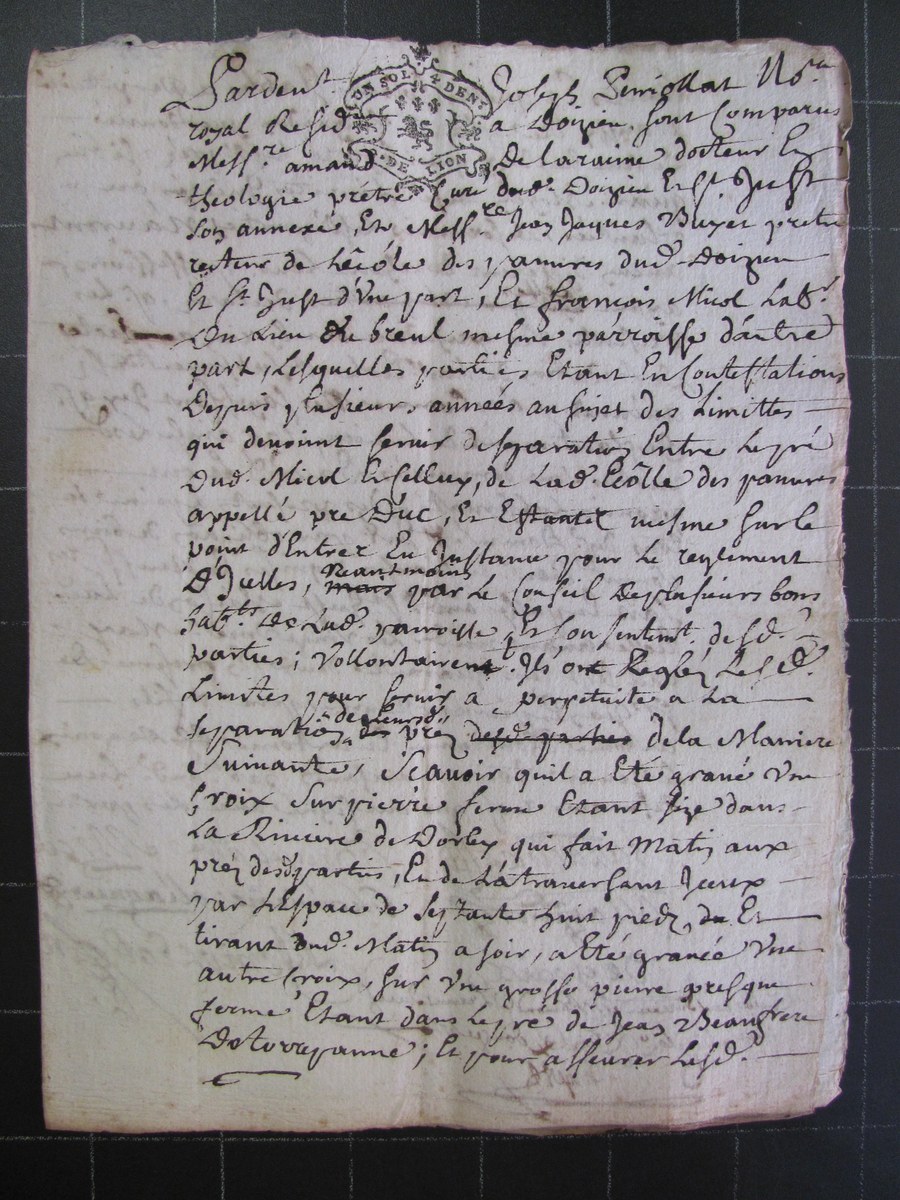 Pardevt Joseph Perriollat No.re
UN SOL 4 DEN.rs
G. DE LION
royal Resid. a Doizieu sont comparus
Mess.re amand Delaraime docteur En
theologie prétre Curé dud. Doizieu Et St Just
son annexe, Et Mess.re Jean Jaques Buyet pretre
recteur de Lêcôle des pauures dud. Doizieu
Et St Just d'Vne part, Et françois Micol Lab.r
Du Lieu du breul mesme parroisse dautre
part, Lesquelles parties Etant En Contestations
Depuis plusieurs années au sujet des Limittes
qui deuoint seruir de separation Entre Le pré
Dud. Micol Et celluy, de Lad. Ecôlle des pauures
appellé pre Duc, Et Estantz mesme sur le
point d'Entrer En Instance pour Le reglement
D'Icelles, mais Neantmoins par Le Conseil De plusieurs bons
habts de Lad. parroisse Et Consentemt. desd.
parties; Vollontairemt. Ils ont Regléz Lesd.
Limites pour seruir a perpetuité a La
separation des de leursd. préz desd. parties de la Maniere
Suiuante, Scauoir quil a Eté graué Vne
Croix sur pierre ferme Etant size dans
La Riuiere de Dorley qui fait Matin aux
préz desd. parties, En de Là trauersant Iceux
par L'Espace de septante huit piedz du Et
tirant dud. Matin a soir, a Eté grauée Vne
autre Croix, sur Vne grosse pierre presque
fermé Etant dans Le pré de Jean Beaufrere
De torrepanne; Et pour asseurer Lesd.